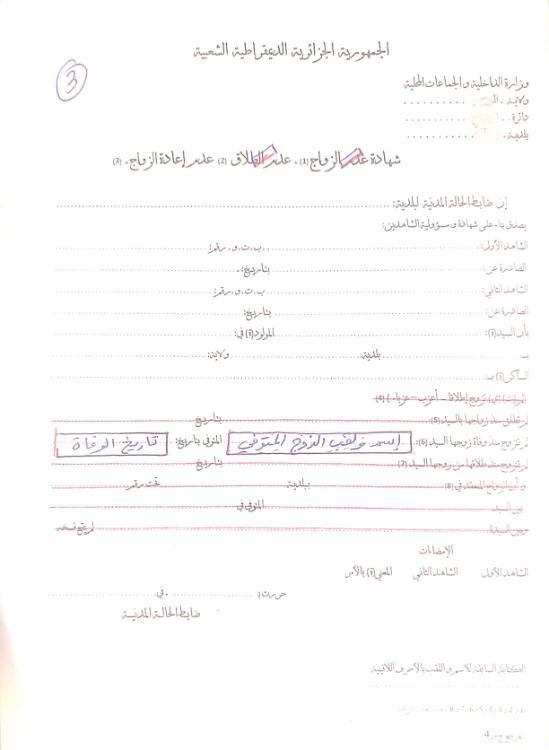 الجمهورية الجزائرية الديمقراطية الشعبية
3
وزارة الداخلية و الجماعات المحلية
ولاية
دائرة
بلدية
شهادة عدم الزواج (1) . عدم الطلاق (2) عدم إعادة الزواج . (3)
إن ضابط الحالة المدنية لبلدية :
يصدق بناء على شهادة و مسؤولية الشاهدين :
الشاهد الأول : ب . ت . و . رقم :
الصادرة عن : بتاريخ :
الشاهد الثاني : ب . ت . و . رقم :
الصادرة عن : بتاريخ :
بأن السيد (ة) : المولود (ة) في :
بـ بلدية ولاية :
الساكن (ة) بـ
لم يسبق له (ا) أن تزوج إطلاقا - أعزب = عزباء - (4)
لم تطلق منذ زواجها بالسيد (5) بتاريخ
لم تتزوج منذ وفاة زوجها السيد (6) : إسم و لقب الزوج المتوفي المتوفى بتاريخ : تاريخ الوفاة
لم تتزوج منذ طلاقها من زوجها السيد (7) بتاريخ
و أن الزواج المنعقد في (8) ببلدية تحت رقم
بين السيد المتوفى في
وبين السيدة لم يقع فسخه
الإمضاءات
الشاهد الأول الشاهد الثاني المعني (ة) بالأمر
حرر بـ : في
ضابط الحالة المدنية
الكتابة السابقة للاسم و اللقب بالأحرف اللاتينية